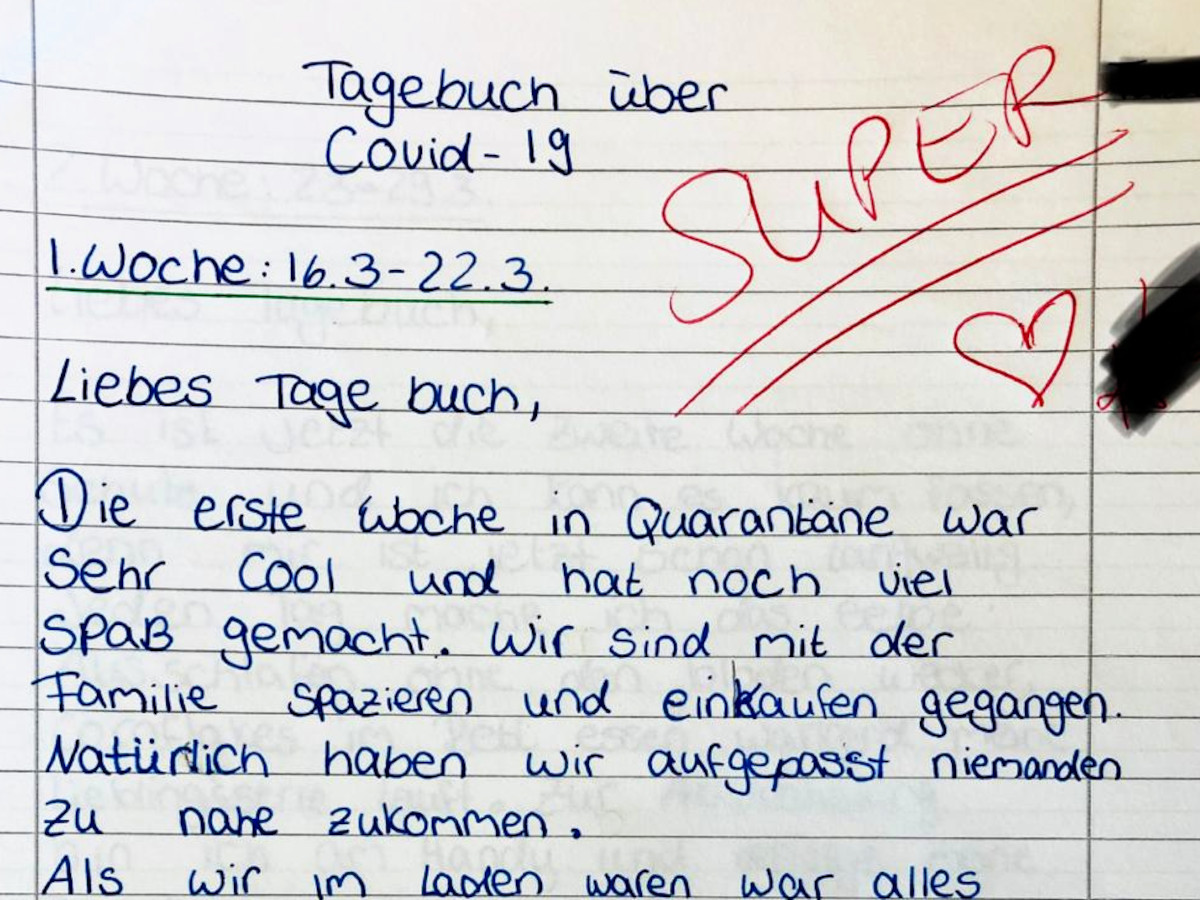 Tagebuch über
Covid-19
SUPER
1. Woche: 16.3-22.3.
Liebes Tage buch,
Die erste Woche in Quarantäne war
Sehr Cool und hat noch viel
Spaß gemacht. Wir sind mit der
Familie spazieren und einkaufen gegangen.
Natürlich haben wir aufgepasst niemanden
zu nahe zukommen.
Als wir im Laden waren war alles